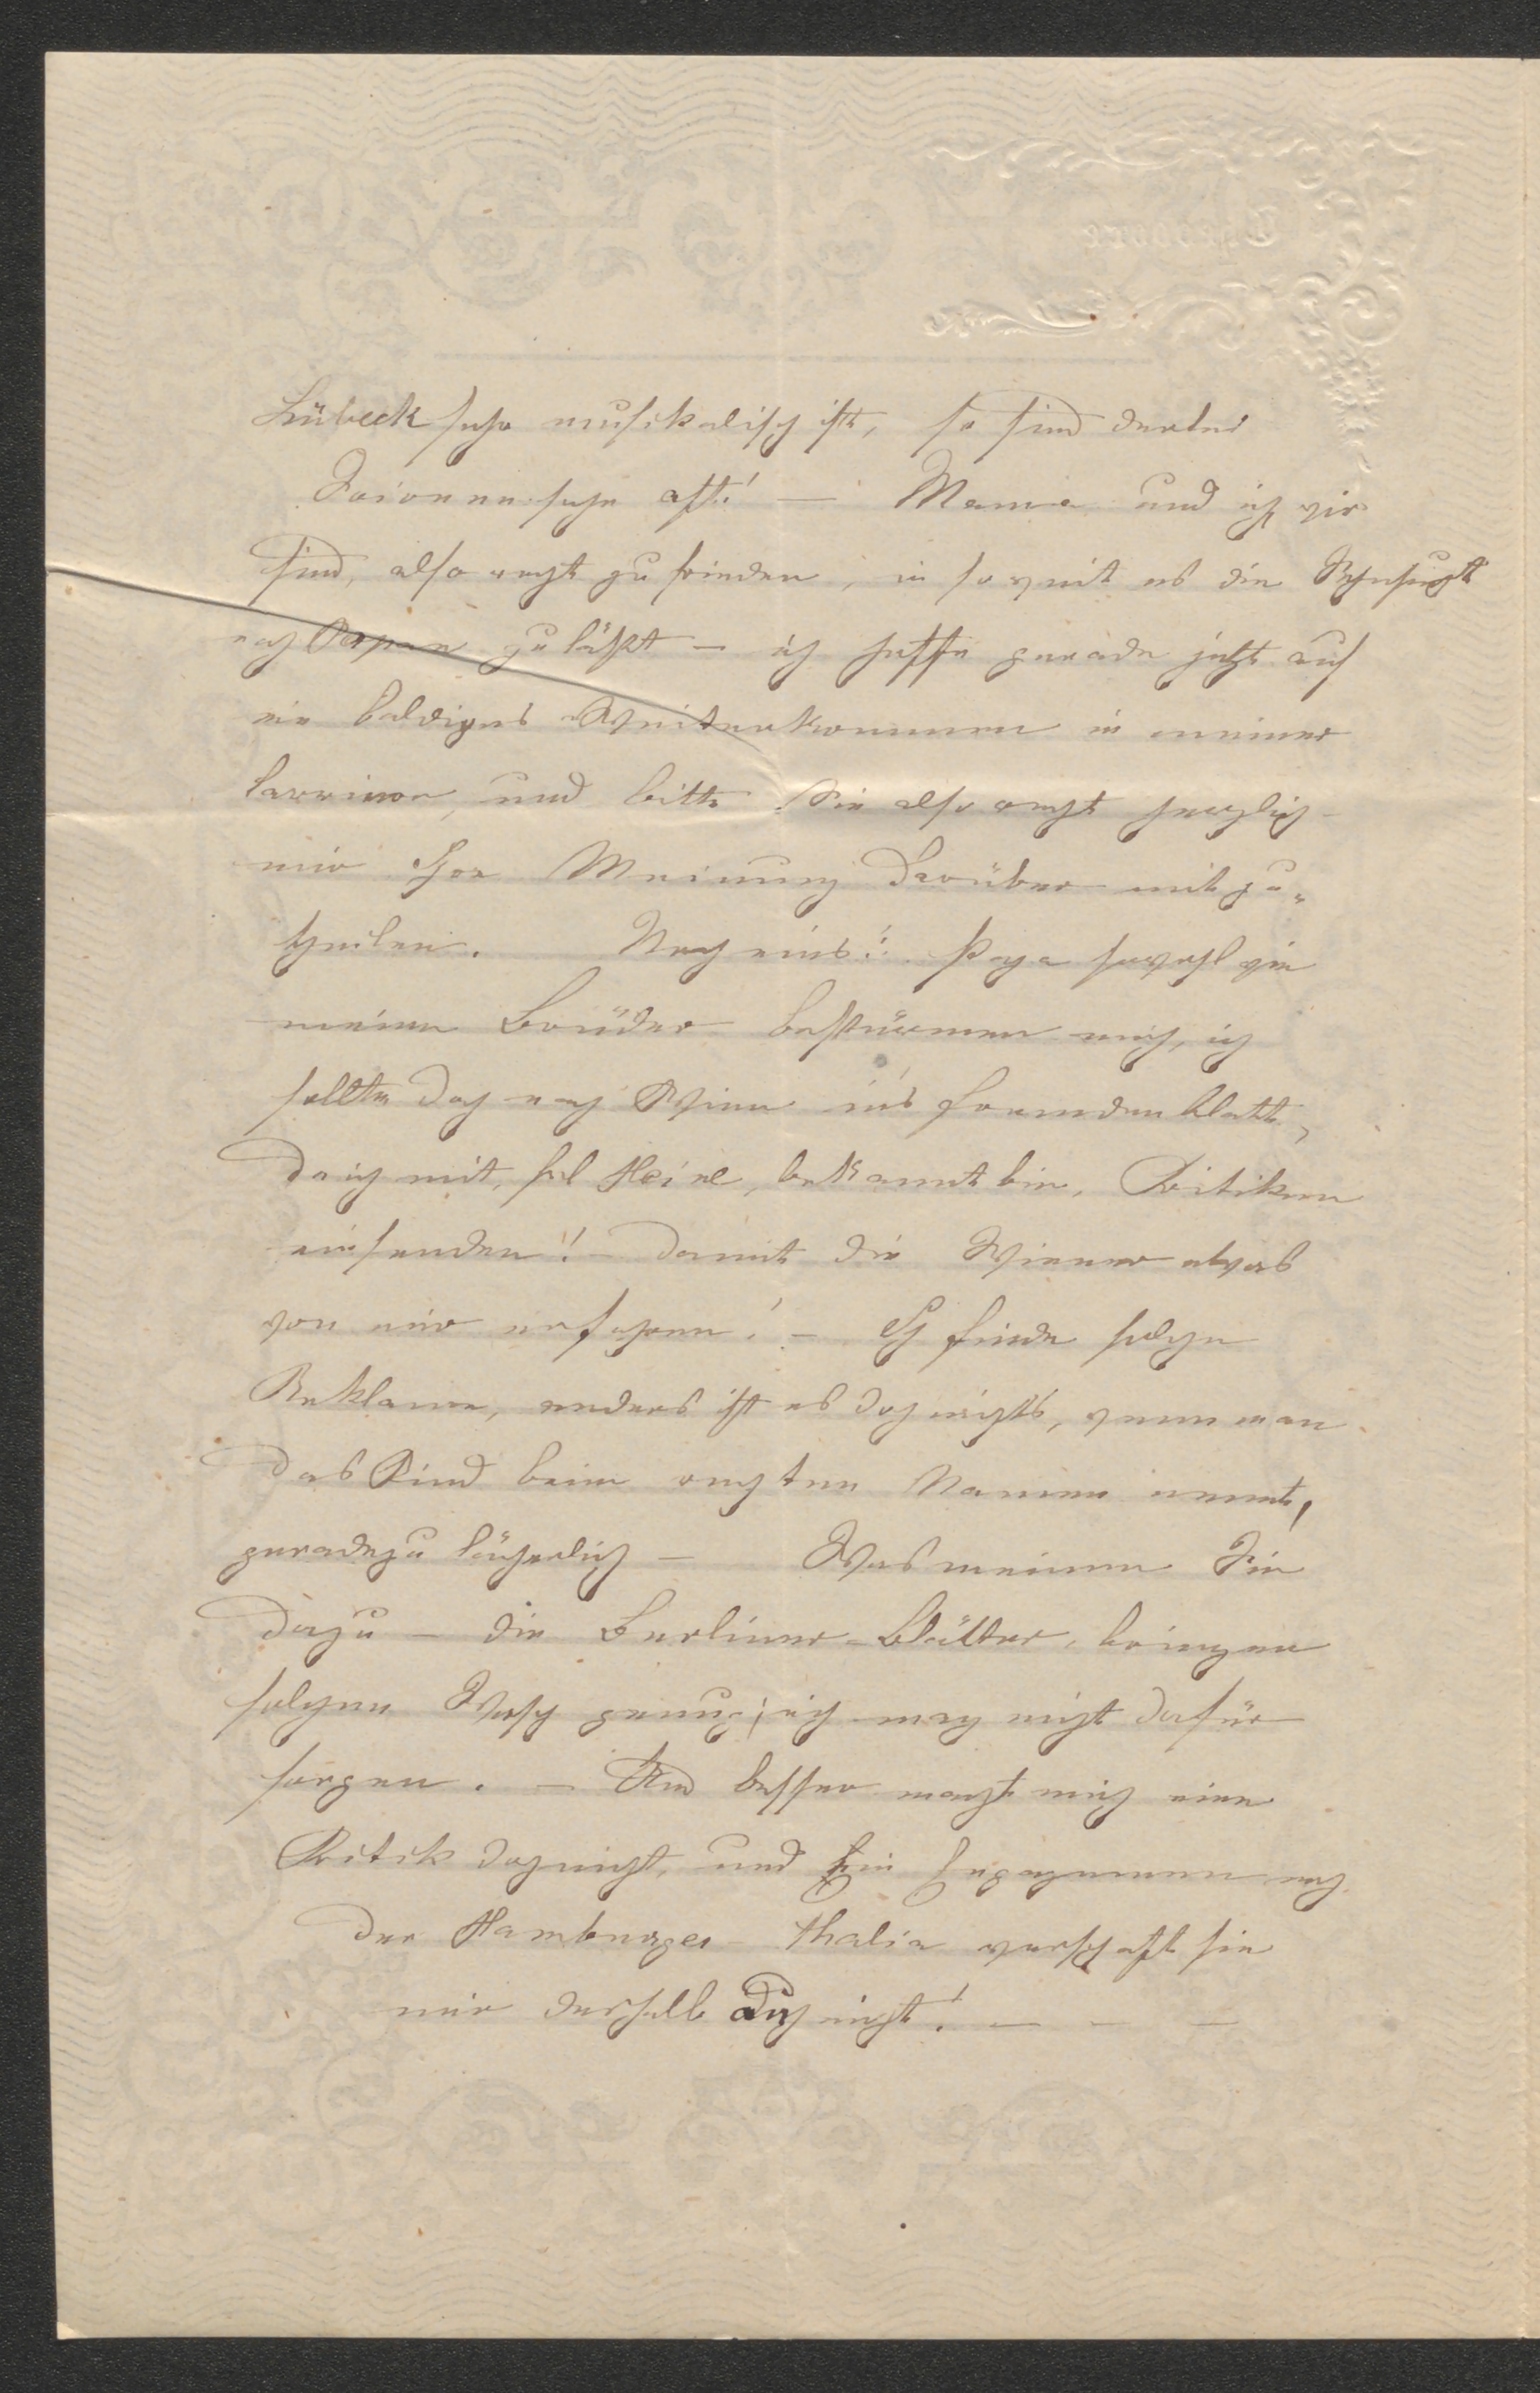 Lübeck sehr musikalisch ist, so sind derlei
Soiréen sehr oft! — Mama und ich wir
sind, also recht zufrieden, in soweit es die Sehnsucht
nach Papa zuläßt — ich hoffe gerade jetzt auf
ein baldiges Weiterkommen in meiner
Carriere, und bitte Sie also recht herzlich
mir Ihre Meinung darüber mitzu-
theilen. Noch eins: Papa sowohl wie
meine Brüder bestürmen mich, ich
sollte doch nach Wien in's Fremdenblatt,
da ich mit, Heine, bekannt bin, Kritiken
einsenden! — damit die Wiener etwas
von mir erfahren! — Ich finde solche
Reklame, anders ist es doch nichts, wenn man
das Kind beim rechten Namen nennt,
geradezu lächerlich — Was meinen Sie
dazu — die Berliner-Blätter, bringen
solchen Wasch genug; ich mag nicht dafür
sorgen. — Und besser macht mich eine
Kritik doch nicht, und ein Engagement nach
der Hamburger Thalia verschafft sie
mir deshalb auch nicht! — — —